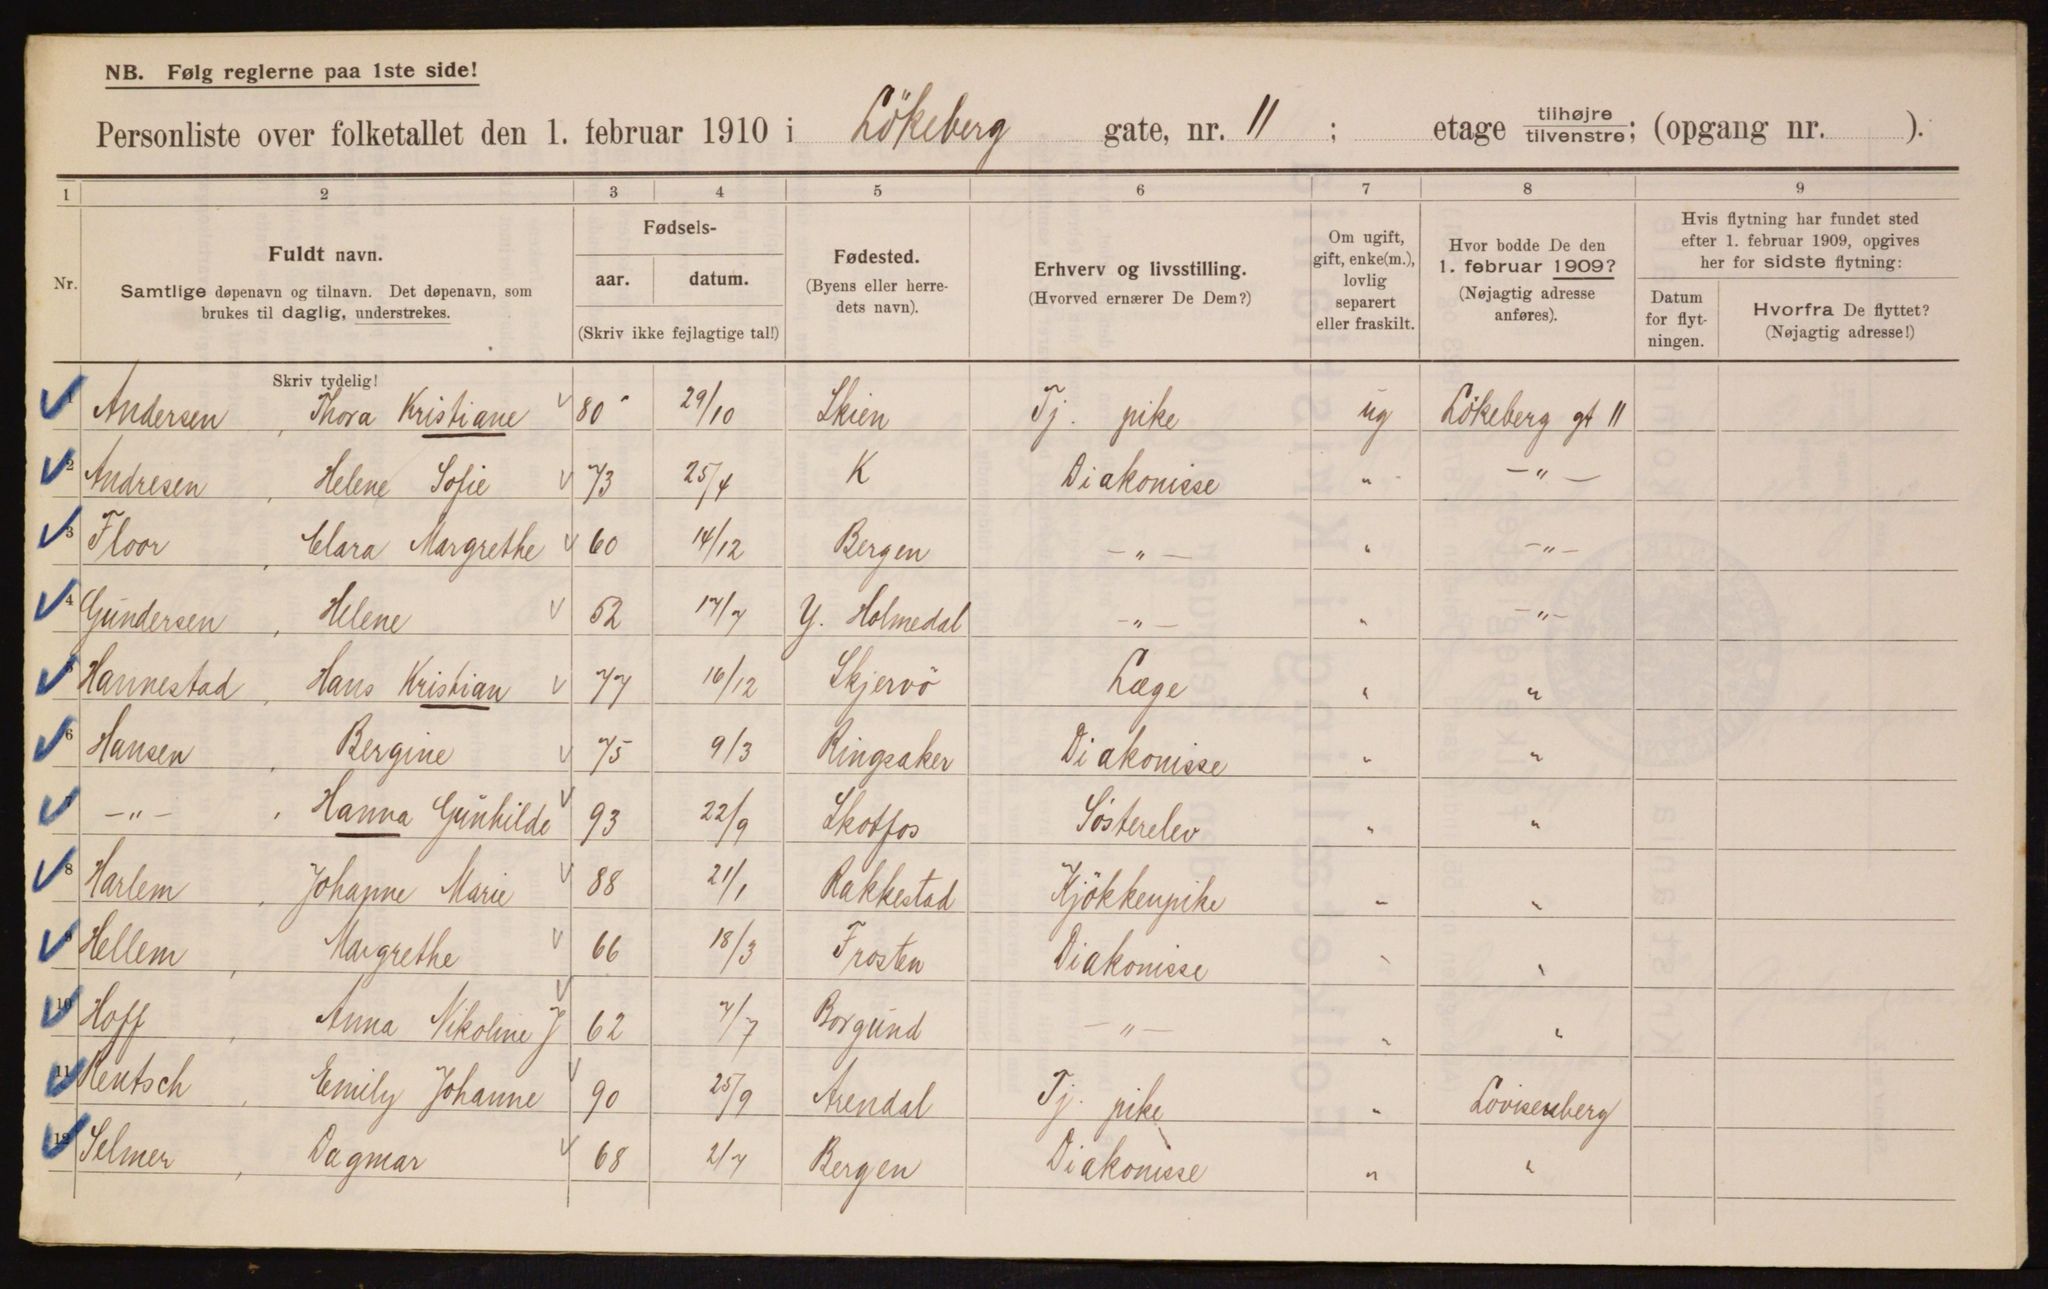 NB. Følg reglerne paa 1ste side!
Personliste over folketallet den 1. februar 1910 i Lökeberg gate, nr. 11 ; etage tilhøjre/tilvenstre; (opgang nr. ).
1 2 3 4 5 6 7 8 9
Nr.
Fuldt navn.
Samtlige døpenavn og tilnavn. Det døpenavn, som
brukes til daglig, understrekes.
Fødsels-
aar. datum.
(Skriv ikke fejlagtige tal!)
Fødested.
(Byens eller herre-
dets navn).
Erhverv og livsstilling.
(Hvorved ernærer De Dem?)
Om ugift,
gift, enke(m.),
lovlig
separert
eller fraskilt.
Hvor bodde De den
1. februar 1909?
(Nøjagtig adresse
anføres).
Hvis flytning har fundet sted
efter 1. februar 1909, opgives
her for sidste flytning:
Datum
for flyt-
ningen.
Hvorfra De flyttet?
(Nøjagtig adresse!)
Skriv tydelig!
1 Andersen, Thora Kristiane 80 29/10 Skien Tj. pike ug Lökeberg gt 11
2 Andresen, Helene Sofie 73 25/4 K Diakonisse " -"-
3 Floor, Clara Margrethe 60 14/12 Bergen -"- " -"-
4 Gundersen, Helene 52 17/7 Y. Holmedal -"- " -"-
5 Hannestad, Hans Kristian 77 16/12 Skjervö Læge " "
6 Hansen, Bergine 75 9/3 Ringsaker Diakonisse " "
7 -"-, Hanna Gunhilde 93 22/9 Skotfos Södterelev " "
8 Harlem, Johanne Marie 88 21/1 Rakkestad Kjökkenpike " "
9 Hellem, Margrethe 66 18/3 Frosten Diakonisse " "
10 Hoff, Anna Nikoline J 62 7/7 Borgund -"- " "
11 Rentsch, Emily Johanne 90 25/9 Arendal Tj. pike " Lovisenberg
12 Selmer, Dagmar 68 2/7 Bergen Diakonisse " "